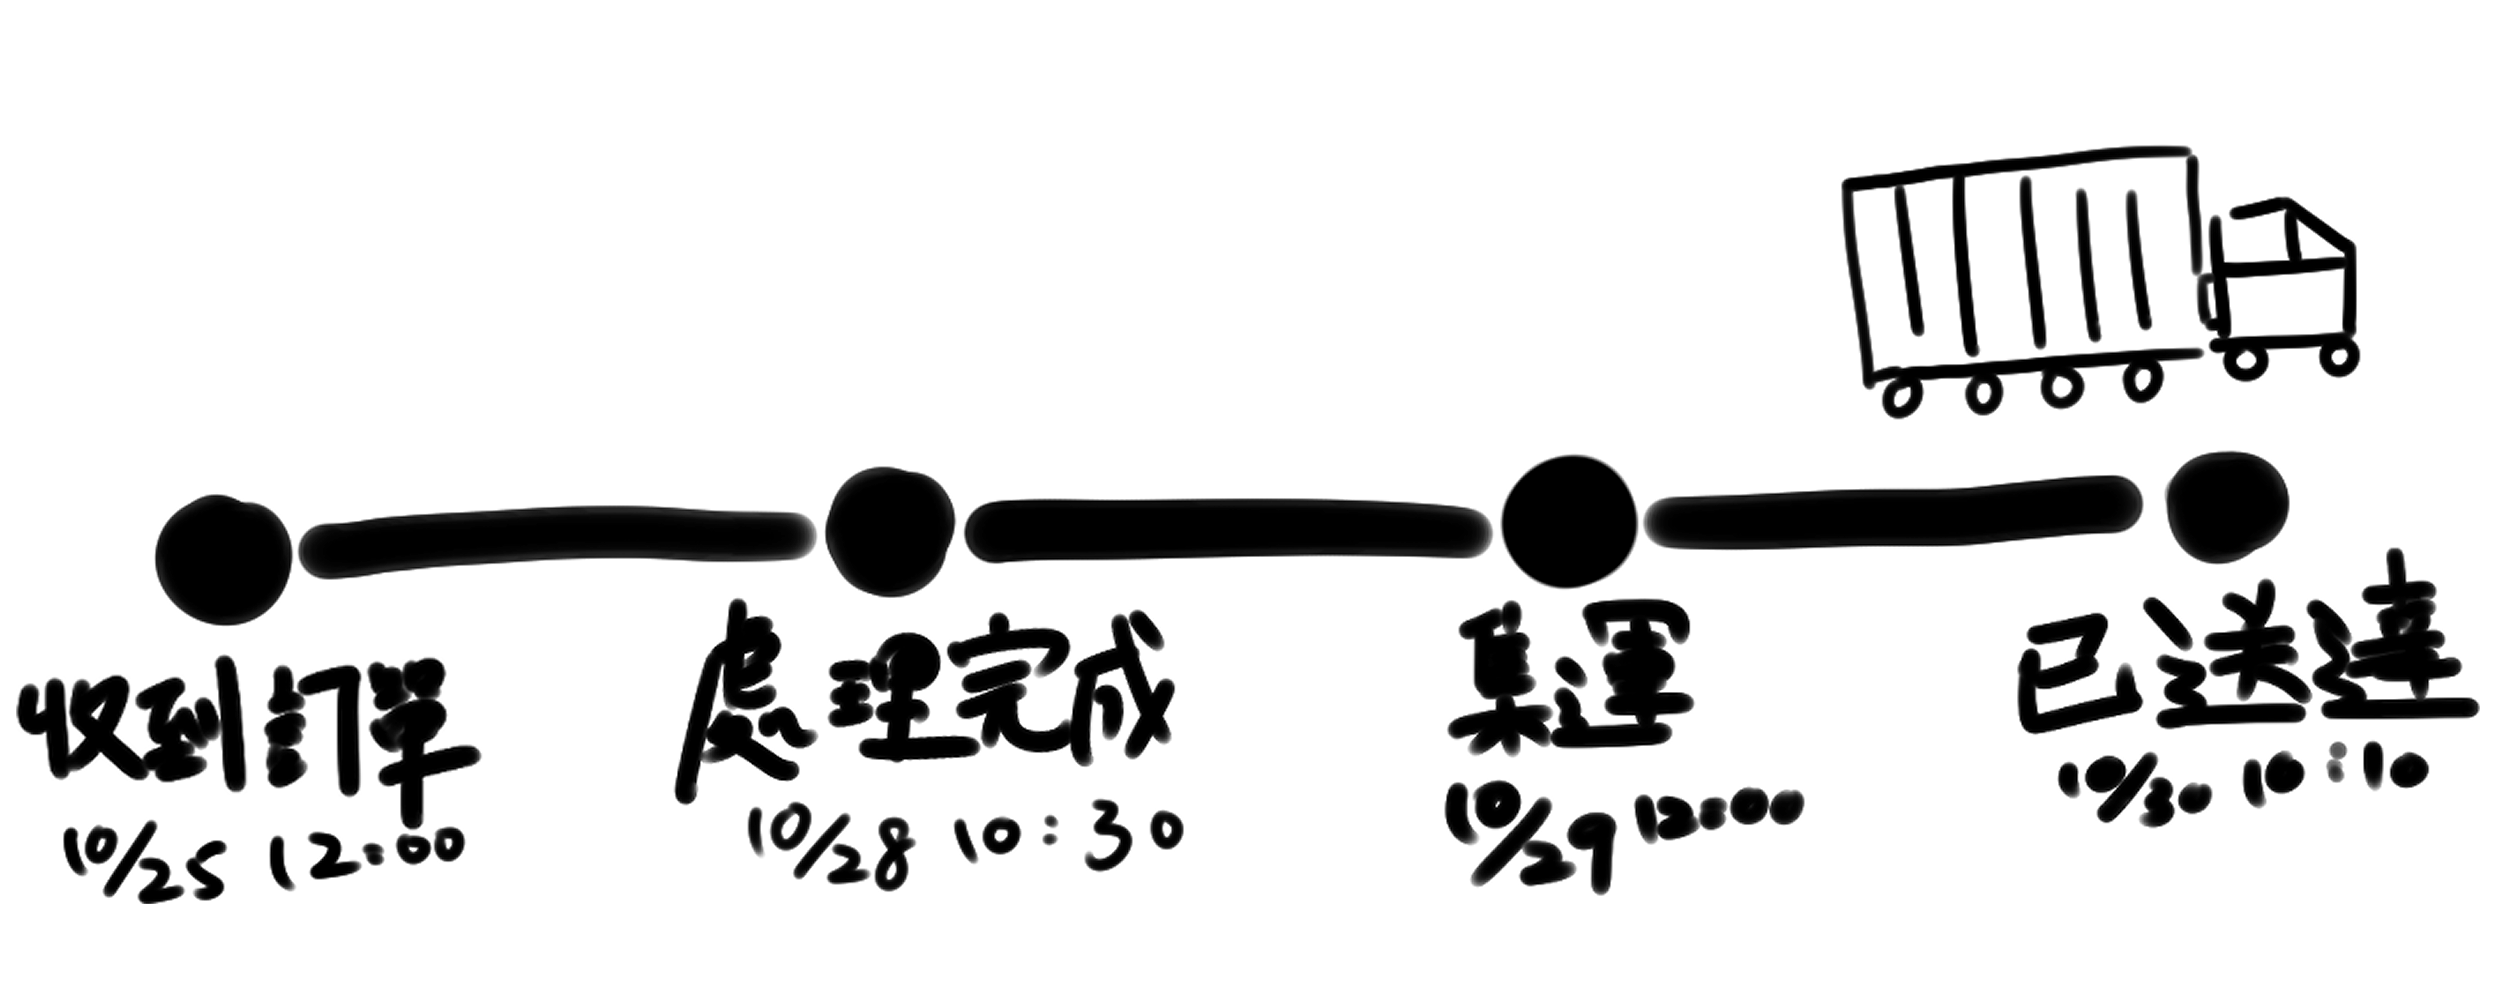 收到訂單
10/25 12:00
處理完成
10/28 10:30
集運
10/29 12:00
已送達
10/30 10:10